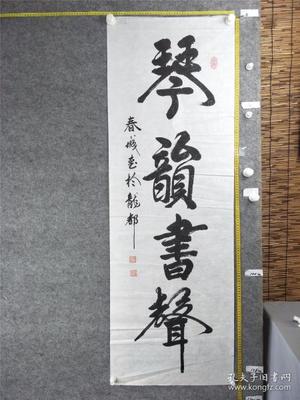 琴韻書聲
春城書於龍都
孔夫子旧书网
www.kongfz.com